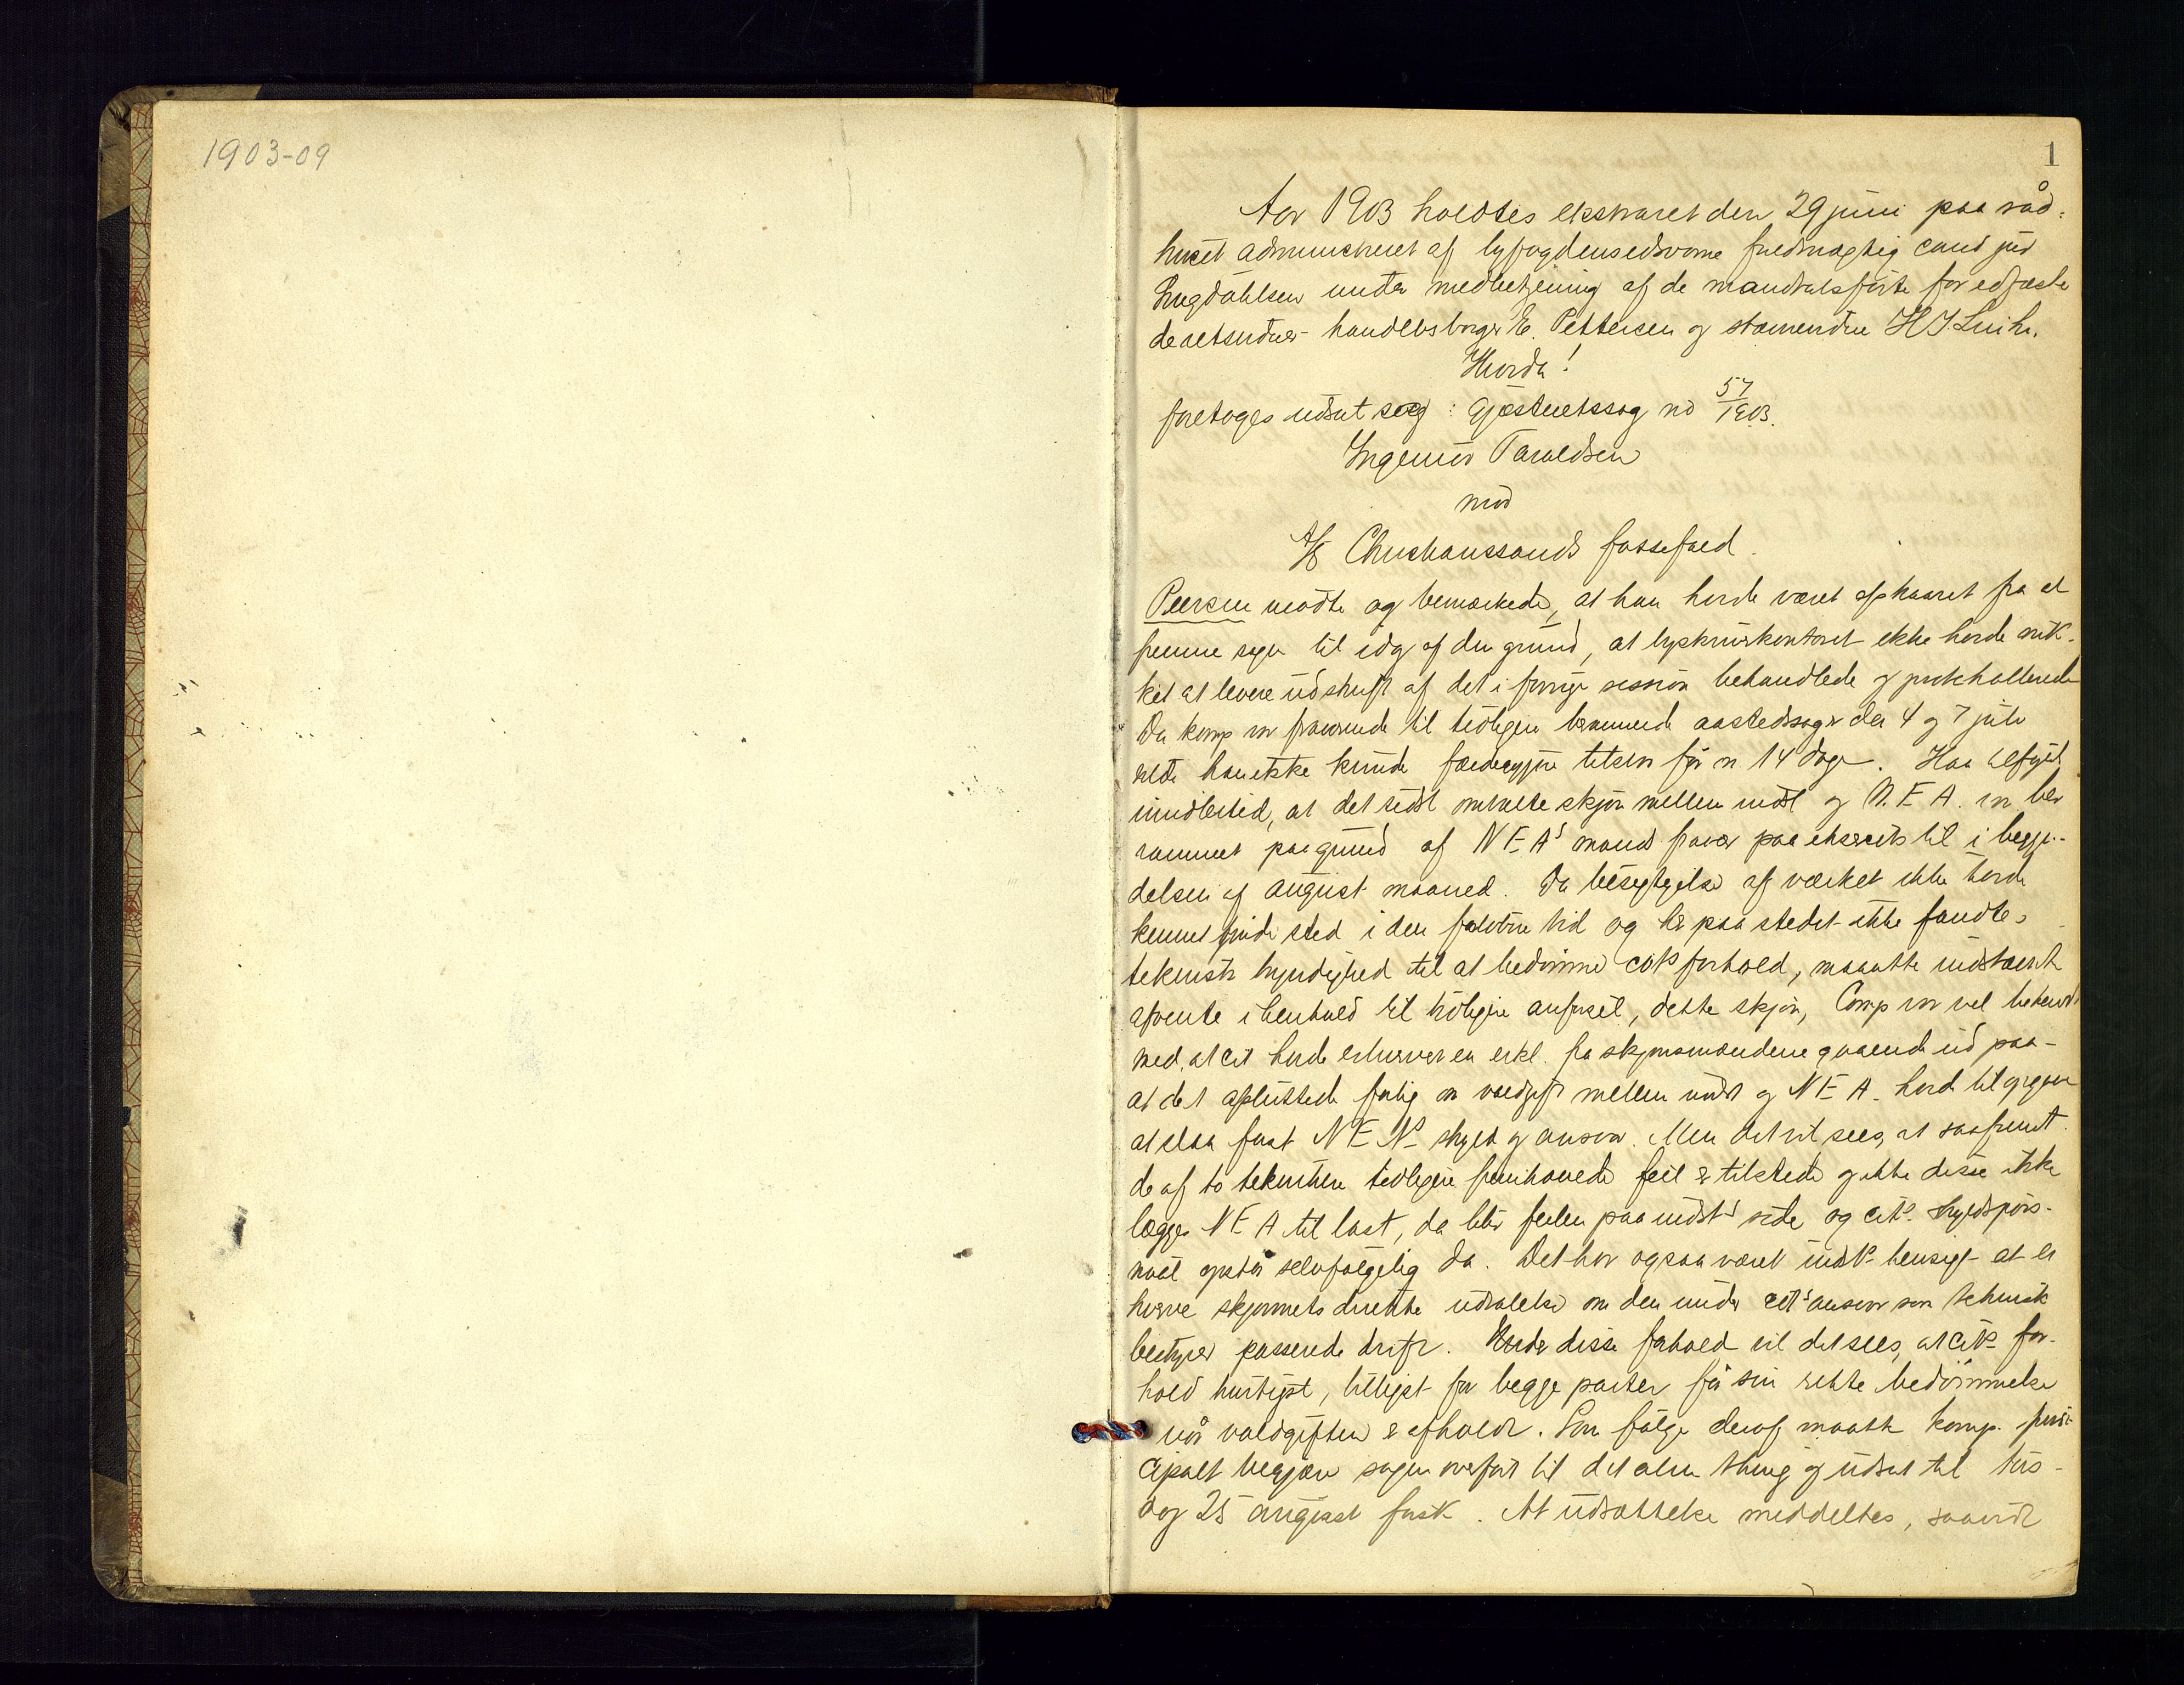 1903-09
1
Aar 1903 holdtes ekstraret den 29 juni paa råd-
huset administreret af byfogdens edsvorne fuldmægtig cand jur
Lugdahlsen under medbetjening af de mandtalsførte for edfæste
de retsvidner handelsborger E. Pettersen og H J.
Hvorda!
foretoges udsat sag: Gjæsteretssag no 57/1903.
Ingeniør Taraldsen
mod
A/S Christianssands fossefald.
Peersen mødte og bemærkede, at han havde været afskaaret fra at
fremme sagen til idag af den grund, at byskriverkontoret ikke havde ruk-
ket at levere udskrift af det i forrige session behandlede og protokollerede
Da komp er fraværende til tidligere berammede aastedssager den 4 og 7 juli
vilde han ikke kunde før om 14 dage. Han
imidlertid, at det sidst omtalte skjøn mellem indst og N. E A. er be-
rammet paa grund af N E A's mands fravær paa til i begyn-
delsen af august maaned. Da besigtigelse af værket ikke havde
kunnet finde sted i den tid og her paa stedet ikke fandtes
teknisk kyndighed til at bedømme cit's forhold, maatte indstævnte
afvente i henhold til tidligere anførsel, dette skjøn, Comp var vel bekendt
med, at cit havde erhvervet en erkl. fra skjønsmændene gaaende ud paa
at det afsluttede forlig om voldgift mellem indst og N E A. havde til opgave
at slaa fast N E A's skyld og ansvar. Men det vil sees, at saafremt
de af to teknikere tidligere fremhævede feil er tilstede og ikke disse ikke
lægges N E A til last, da blir feilen paa indst's side og cit's skyldspørs-
maal opstår selvfølgelig da. Det har ogsaa været indst's hensigt at er-
hverve skjønnets direkte udtalelse om den under cit's ansvar som teknisk
bestyrer passerede drift. Under disse forhold vil det sees, at cit's for-
hold hurtigst, billigst for begge parter få sin rette bedømmelse
når voldgiften er afholdt. Som følge deraf maatte komp. prin-
cipalt begjære sagen overført til det alm thing og udsat til tirs-
dag 25 august førstk. At udsættelse meddeltes, saavidt